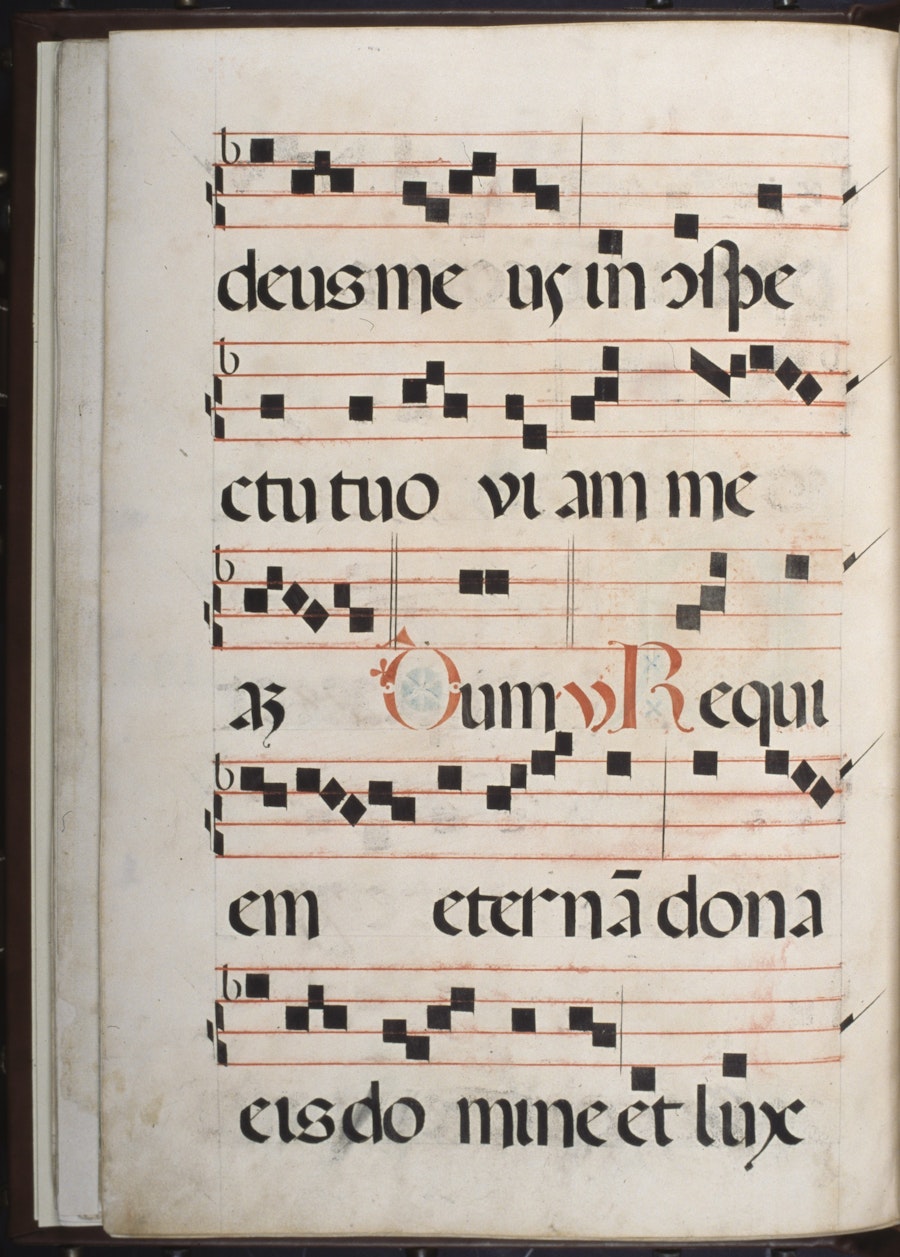 deus me us in ɔspe
ctu tuo vi am me
aꝫ Oum ℣ Requi
em eternā dona
eis do mine et lux